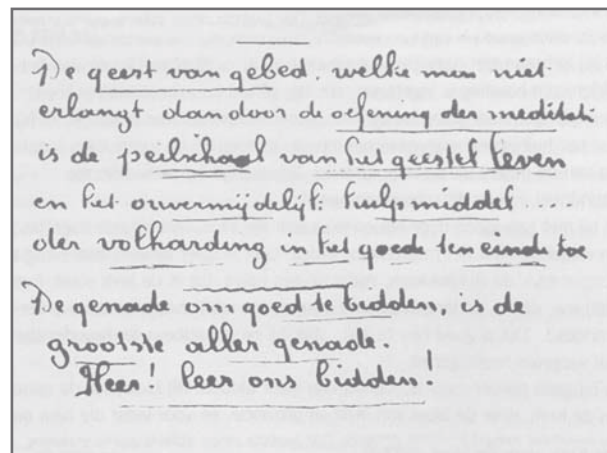 De geest van gebed, welke men niet
erlangt dan door de oefening der meditati
is de peilschaal van het geestel leven
en het onvermijdelijk hulpmiddel
der volharding in het goed ten einde toe
De genade om goed te bidden, is de
grootste aller genade.
Heer! leer ons bidden!